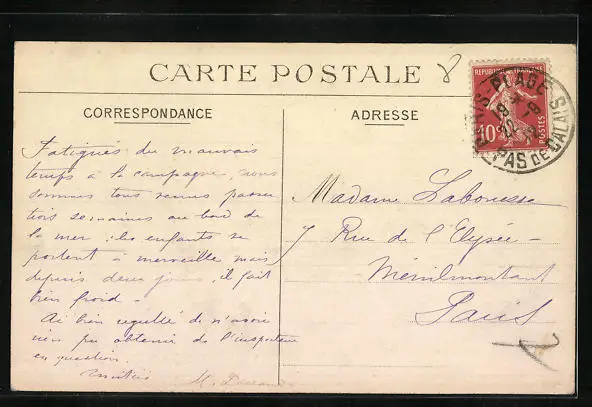 CARTE POSTALE
8
CORRESPONDANCE
ADRESSE
REPUBLIQUE FRANÇAISE
10c
POSTES
PLAGE
PAS DE CALAIS
Fatigués du mauvais
temps à la campagne, nous
sommes tous venus passer
trois semaines au bord de
la mer; les enfants se
portent à merveille mais
depuis deux jours, il fait
bien froid.
Ai bien regretté de n'avoir
rien pu obtenir de l'inspecteur
en question.
Amitiés M.
Madame Labonesse
7 Rue de l'Elysée -
Ménilmontant
Paris